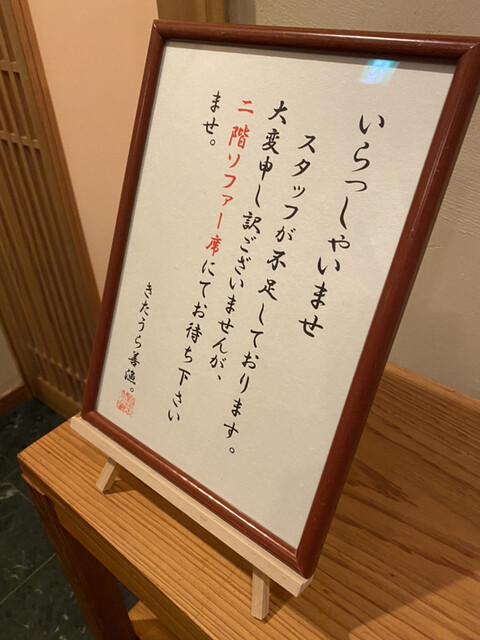 いらっしゃいませ
スタッフが不足しております。
大変申し訳ございませんが、
二階ソファー席にてお待ち下さい
ませ。
きたうら善漁。